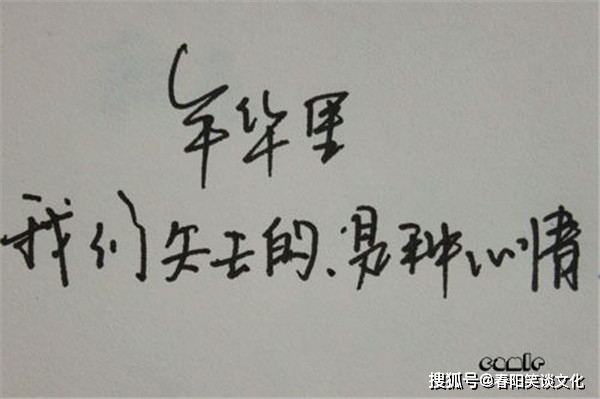 年华里
我们失去的、是种心情
comic
搜狐号@春阳笑谈文化